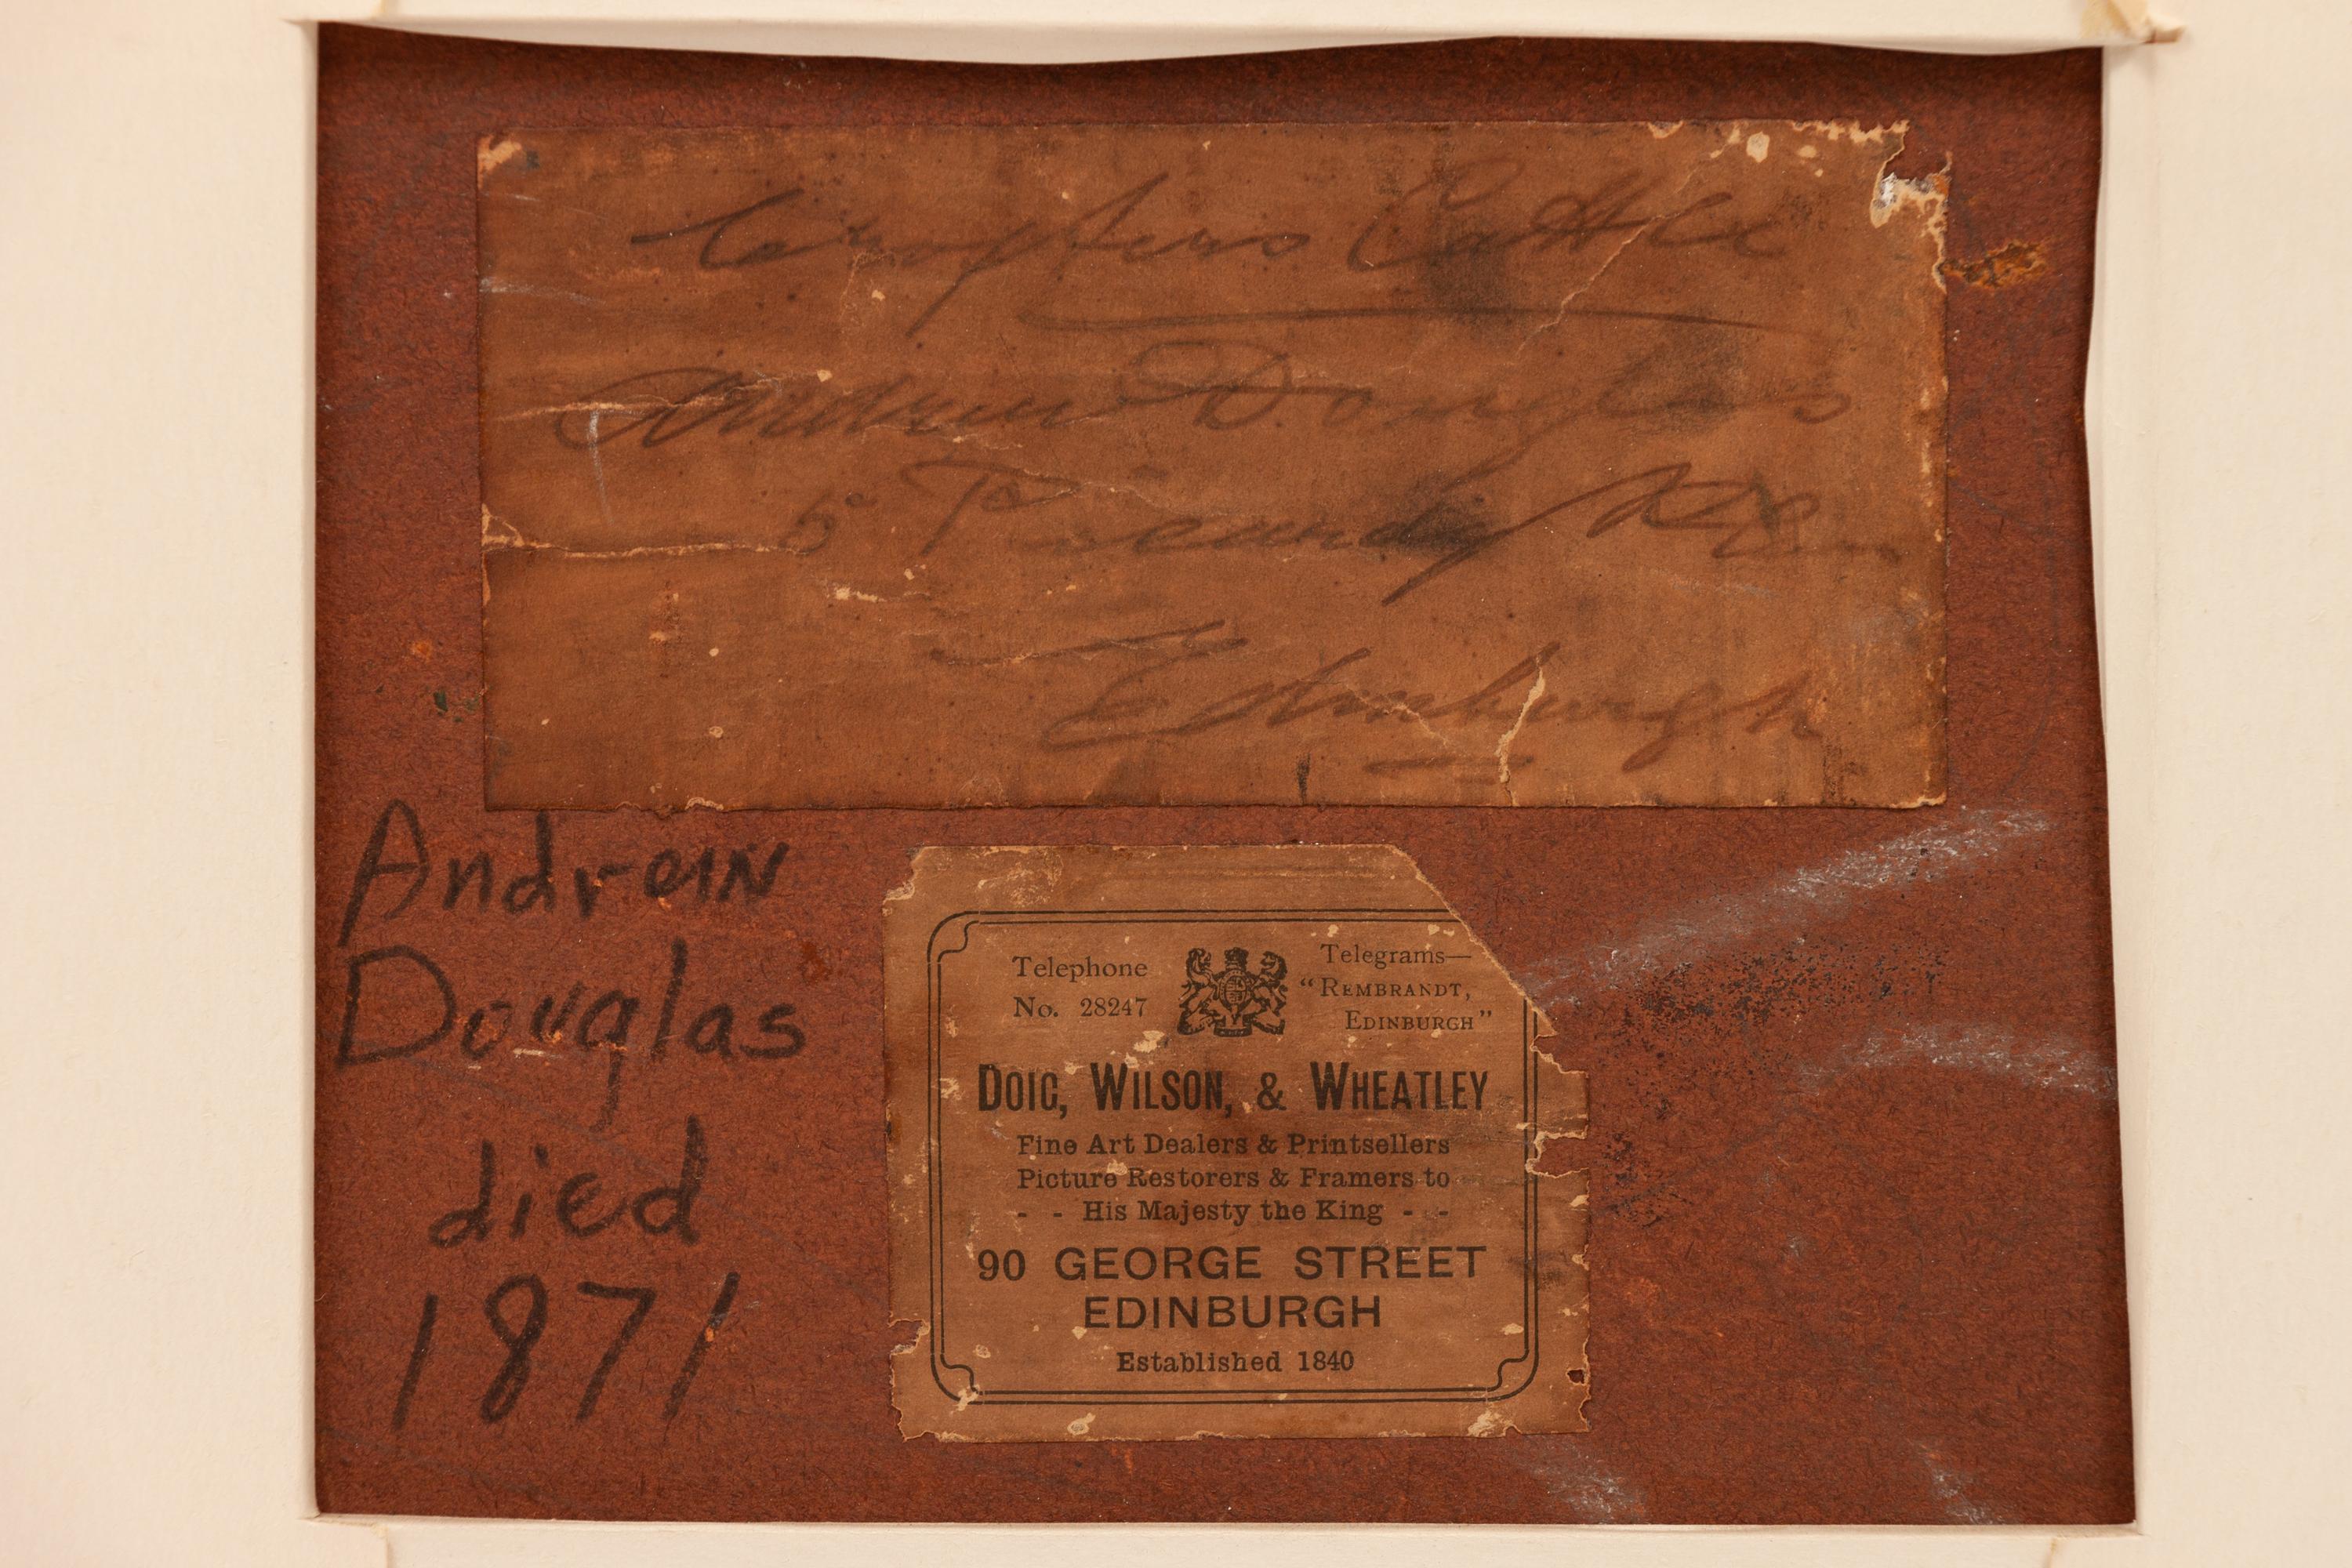 Cattle
Andrew Douglas
5
Edinburgh
Andrew
Douglas
died
1871
Telephone
No. 28247
Telegrams—
"REMBRANDT,
EDINBURGH"
DOIG, WILSON, & WHEATLEY
Fine Art Dealers & Printsellers
Picture Restorers & Framers to
- - His Majesty the King - -
90 GEORGE STREET
EDINBURGH
Established 1840